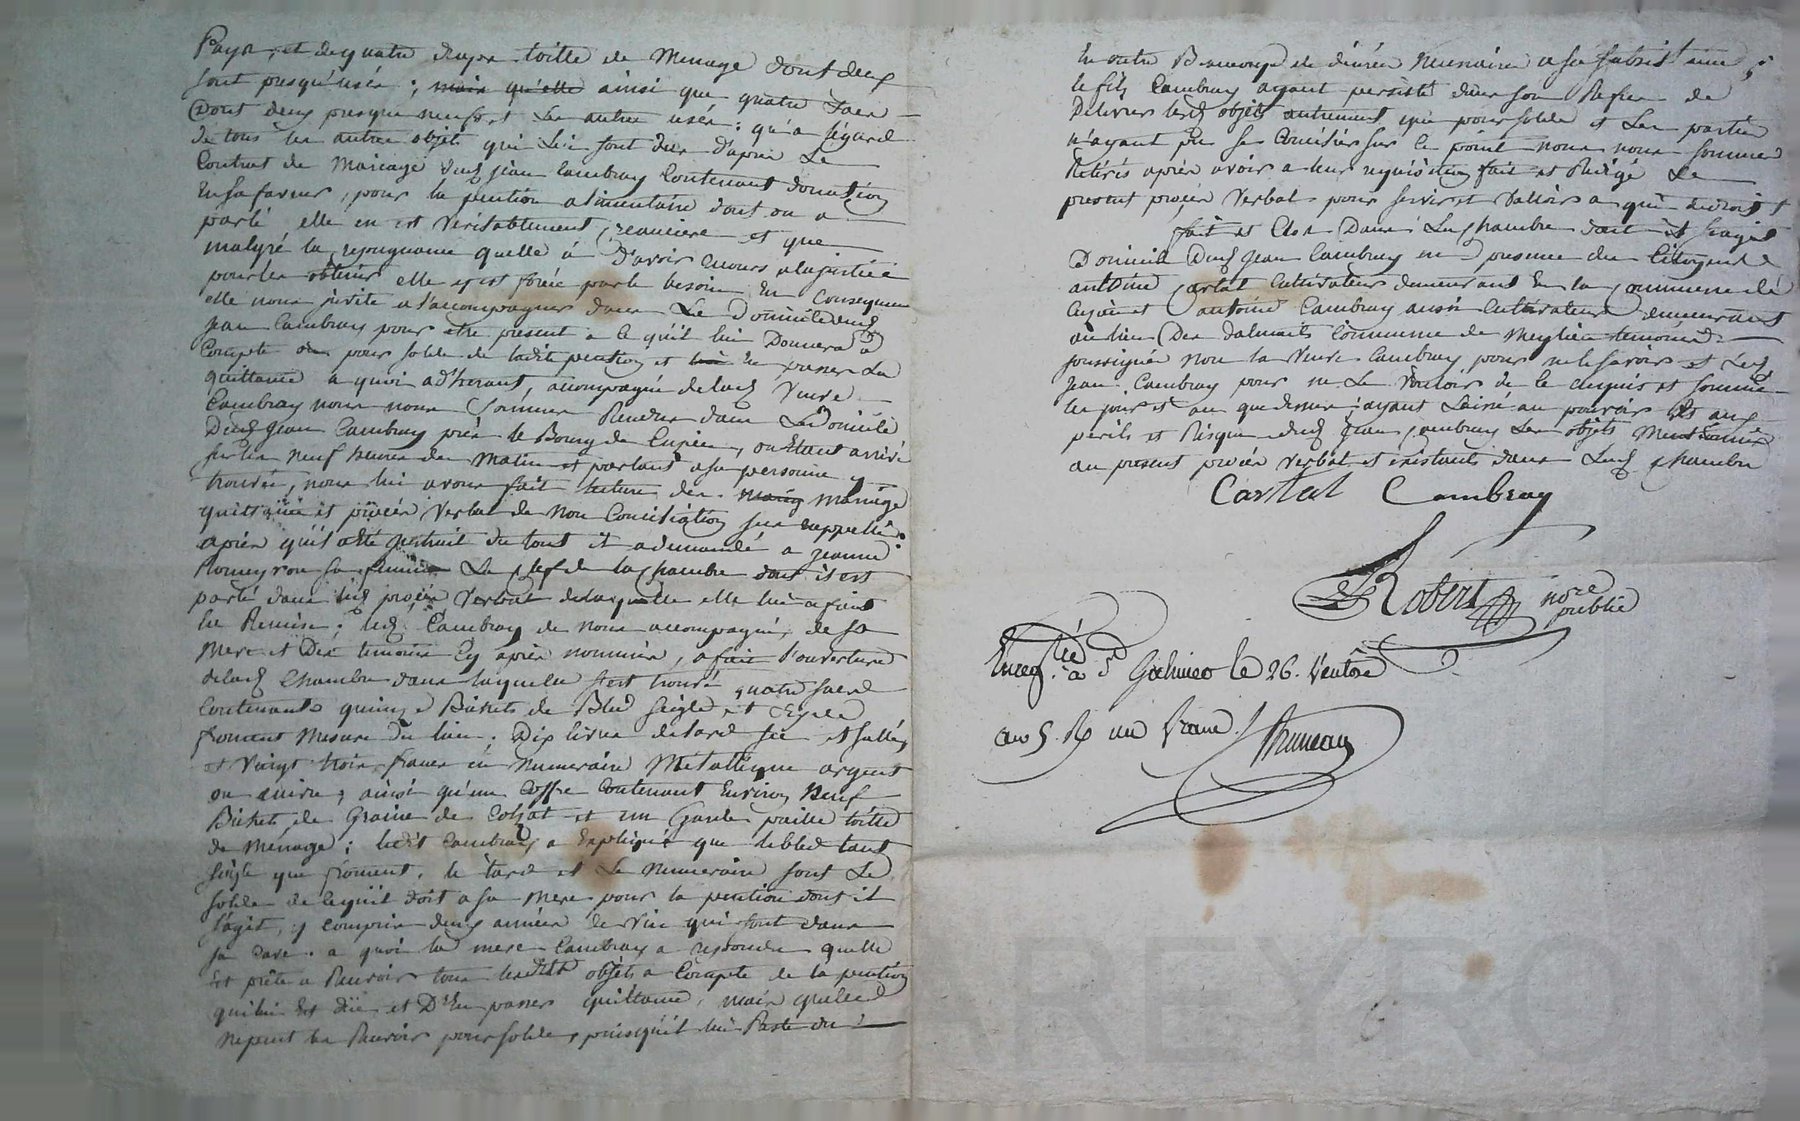 Paya, et de quatre draps toille de Menage dont deux
sont presqu'usés ; mais qu'elle ainsi que quatre sacs
Dont deux presque neufs et les autres usés ; qu'a l'égard
de tous les autres objets qui lui sont dus d'après le
Contrat de Mariage dud. jean Cambray Contenant donation
En sa faveur, pour la pention alimentaire dont on a
parlé elle en est véritablement créancière et que
malgré la repugnance quelle à d'avoir recours a la justice
pour les obtenir elle y est forcée par le besoin En Consequence
elle nous invite a l'accompagner dans Le Domicile dud.
jean Cambray pour etre present a ce qu'il lui Donnera à
Compte ou pour solde de ladite pention et lui en passer La
quittance a quoi adhérant, accompagné de lad. Veuve
Cambray nous nous sommes Rendus dans Le Domicile
Dud. Jean Cambray près le Bourg de Cuzieu, ou Etant arrivé
sur les neuf heures du Matin et parlant a sa personne y
trouvée, nous lui avons fait lecture des mariag mariage
quittance et procès Verbal de Non Conciliation sus rappellés
après qu'il a été instruit du tout il a demandé a jeanne
Romeyron sa femme La clef de la chambre dont il est
parlé dans led. procès Verbal de laquelle elle lui a fait
la Remise ; led. Cambray de nous accompagné, de sa
Mere et Des temoins Cy après nommés, a fait l'ouverture
de lad. Chambre dans laquelle s'est trouvé quatre sacs
Contenants quinze Bichets de Bled seigle et
froment Mesure du lieu ; Dix livres de lard sec et sallé,
et Vingt trois francs en Numeraire Métallique argent
ou cuivre ; ainsi qu'un Coffre Contenant Environ Neuf
Bichets de Graine de Colzat et un Garde paille toille
de Menage ; ledit Cambray a Expliqué que le bled tant
seigle que froment, le lard et Le Numeraire sont Le
solde de ce qu'il doit a sa Mere pour la pention dont il
s'agit, y compris deux années de Vin qui sont dans
sa Cave. a quoi la mere Cambray a repondu quelle
Est prête a Recevoir tous lesdits objets a Compte de la pention
qui lui Est düe et D'En passer quittance, mais quelle
ne peut les Recevoir pour solde, puisqu'il lui Reste du
En outre Beaucoup de denrée Numeraire
le fils Cambray ayant persisté dans son Refus de
Delivrer lesd. objets autrement que pour solde et Les parties
n'ayant pu se Concilier sur ce point nous nous sommes
Retirés après avoir a leur requisition fait et Redigé Le
present procès Verbal pour servir et Valloir a qui de droit
fait et Clos Dans La chambre dont il s'agit
Domicile Dud. Jean Cambray en presence des Citoyens
antoine Cartal Cultivateur demeurant En la Commune de
Cuzieu et antoine Cambray aussi Cultivateur demeurant
au lieu Des Commune de Meylieu temoins
soussignés Non la Veuve Cambray pour ne le savoir et led.
Jean Cambray pour ne Le Vouloir de ce enquis et sommés
les jour et an que dessus ; ayant Laissé au pouvoir et aux
perils et Risques dud. Jean Cambray Les objets Mentionnés
au present procès Verbal et existants dans Lad. Chambre
Cartal Cambray
Robert nore
public
Enregtrée à St Galmier le 26. Ventôse
an 5. R un franc.